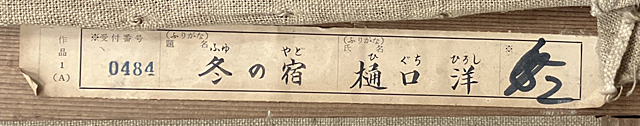 作品1(A)
※受付番号
0484
(ふりがな)
題名
ふゆ やど
冬の宿
(ふりがな)
氏名
ひ ぐち ひろし
樋口洋
※